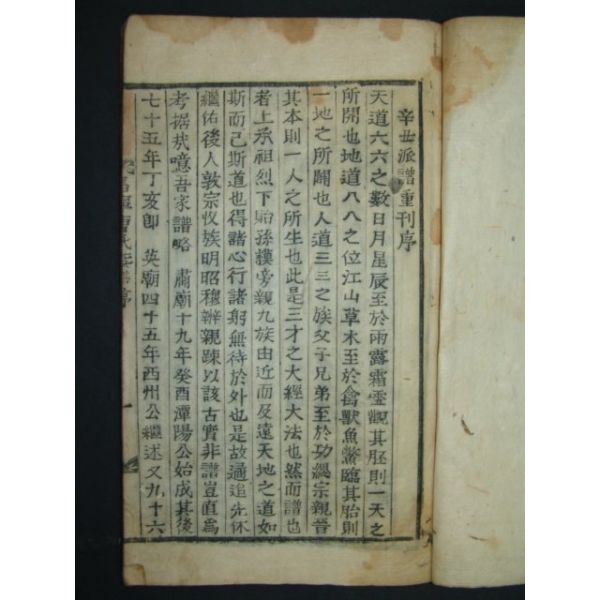 辛丗派譜重刊序
天道六六之數日月星辰至於雨露霜雪觀其胚則一天之
所開也地道八八之位江山草木至於禽獸魚鱉臨其胎則
一地之所闢也人道三三之族父子兄弟至於功緦宗親晉
其本則一人之所生也此是三才之大經大法也然而譜也
者上承祖烈下貽孫謨旁親九族由近而及遠天地之道如
斯而已斯道也得諸心行諸躬無待於外也是故遹追先休
繼佑後人敦宗收族明昭穆辦親踈以該古實非譜豈直爲
考據㢤噫吾家譜略 肅廟十九年癸酉潭陽公始成其後
七十五年丁亥卽 英廟四十五年西州公繼述又九十六
昌寧曺氏 序
一